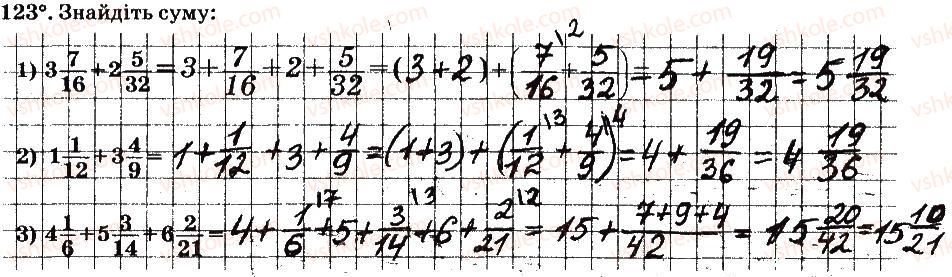 123°. Знайдіть суму:
1) 3 7/16 + 2 5/32 = 3 + 7/16 + 2 + 5/32 = (3 + 2) + (7/16 \2 + 5/32) = 5 + 19/32 = 5 19/32
2) 1 1/12 + 3 4/9 = 1 + 1/12 + 3 + 4/9 = (1+3) + (1/12 \3 + 4/9 \4) = 4 + 19/36 = 4 19/36
3) 4 1/6 + 5 3/14 + 6 2/21 = 4 + 1/6 \7 + 5 + 3/14 \3 + 6 + 2/21 \2 = 15 + (7+9+4)/42 = 15 20/42 = 15 10/21